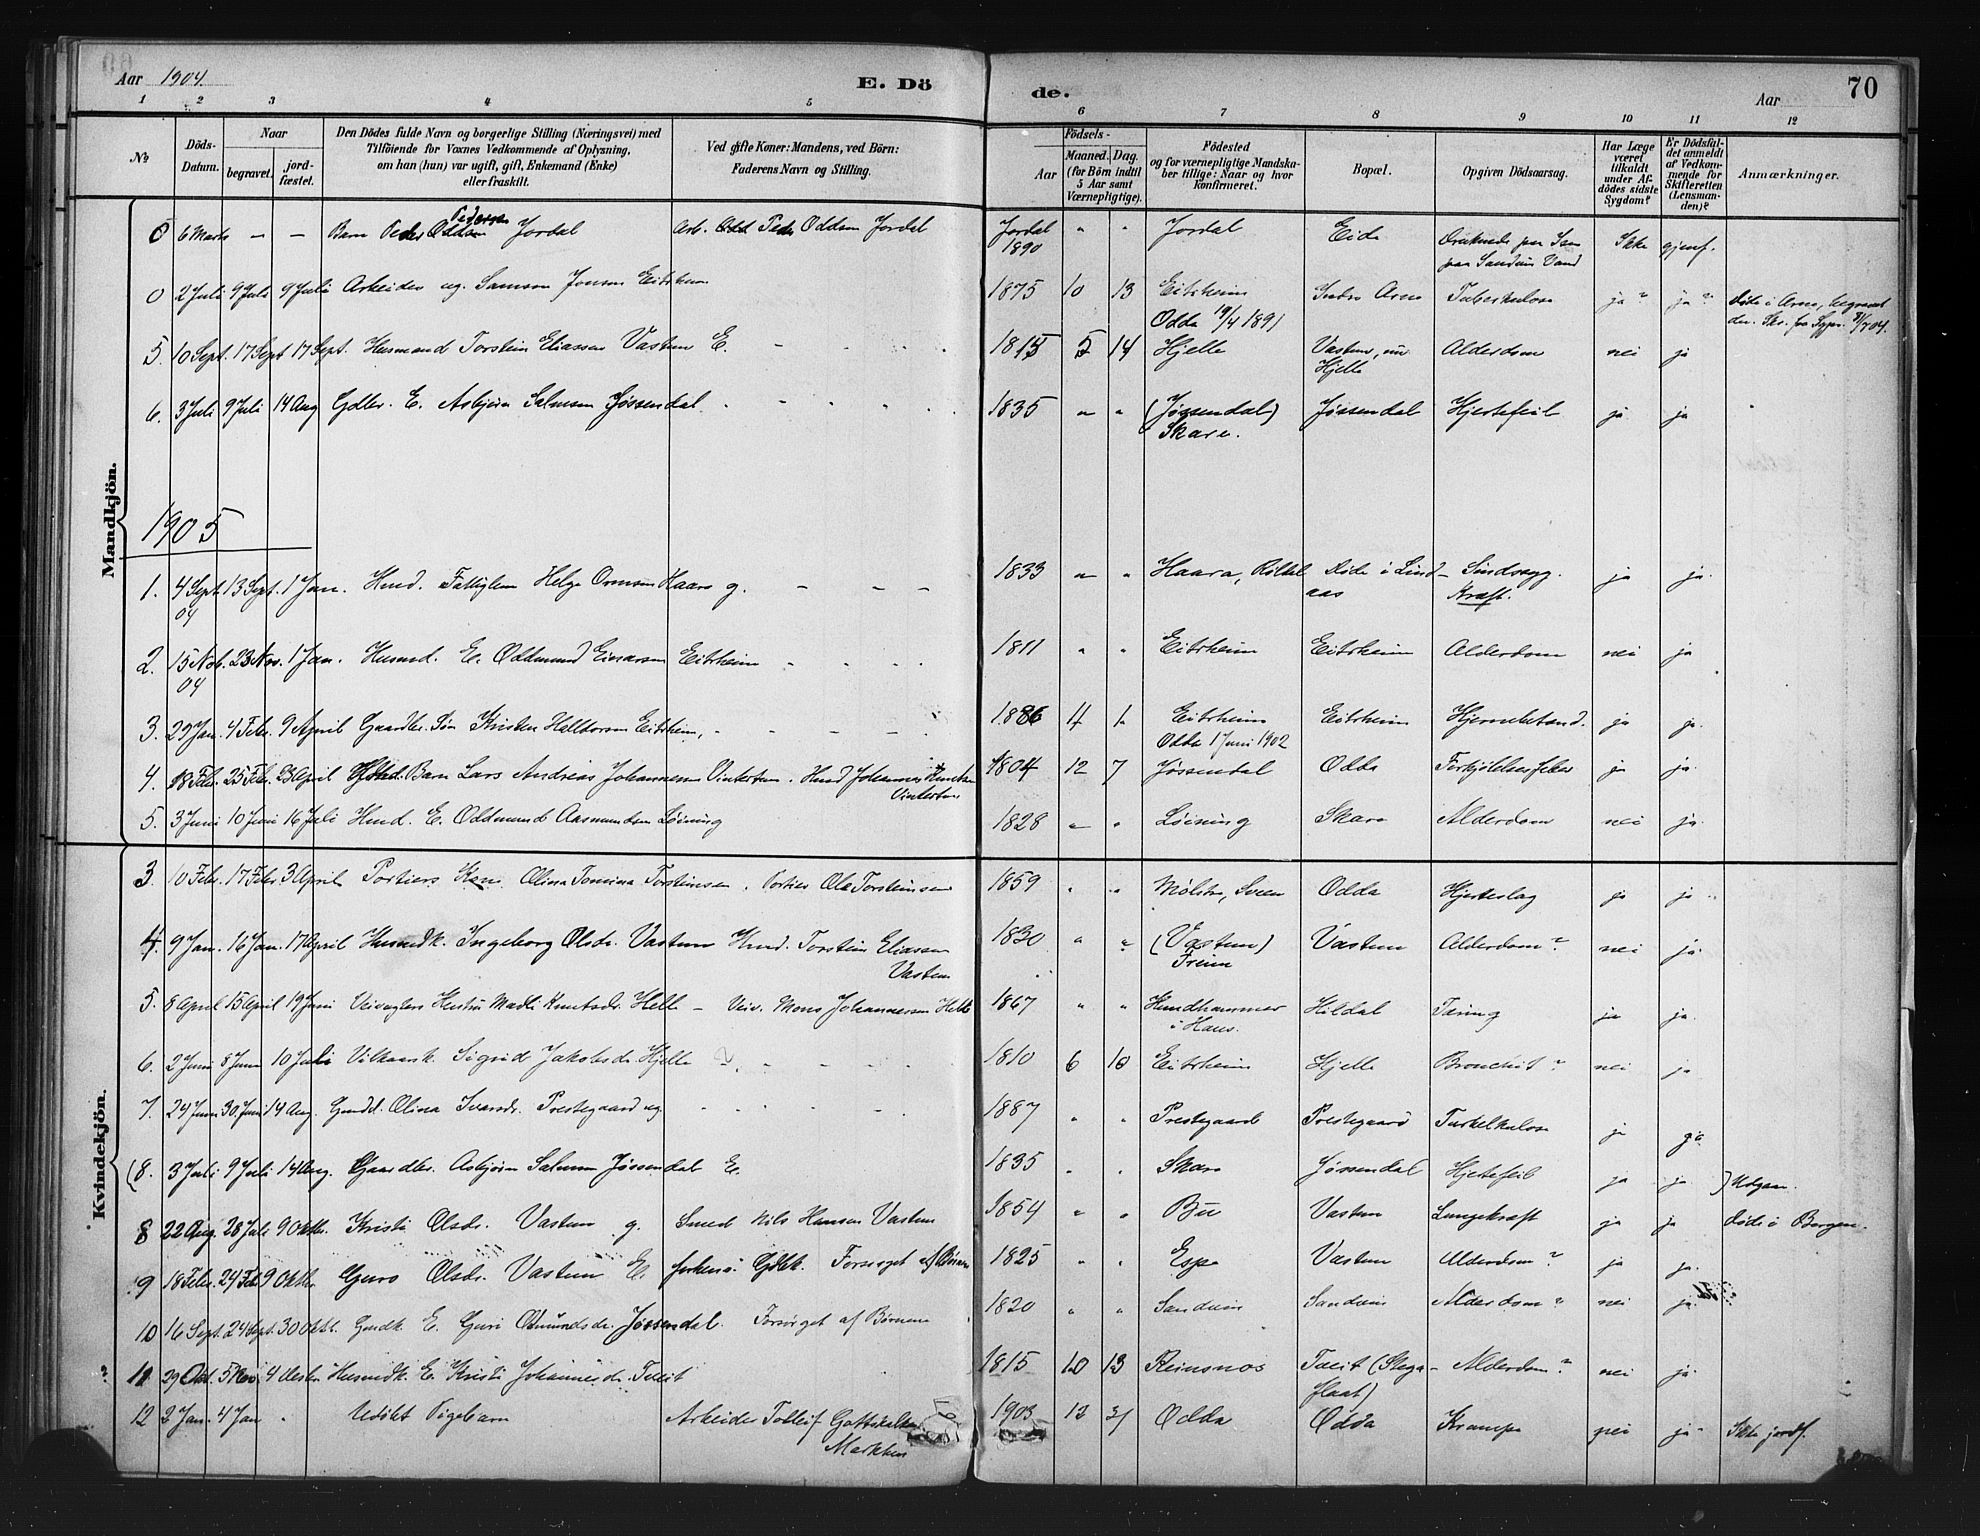 Aar 1904. E. Dö de. Aar 70
1 2 3 4 5 6 7 8 9 10 11 12
No
Döds-Datum.
Naar
begravet.
jord-fæstet.
Den Dödes fulde Navn og borgerlige Stilling (Næringsvei) med
Tilföiende for Voxnes Vedkommende af Oplysning,
om han (hun) var ugift, gift, Enkemand (Enke)
eller fraskilt.
Ved gifte Koner: Mandens, ved Börn:
Faderens Navn og Stilling.
Födsels-
Aar
Maaned. Dag.
(for Börn indtil
5 Aar samt
Værnepligtige).
Födested
og for værnepligtige Mandska-
ber tillige: Naar og hvor
konfirmeret.
Bopæl.
Opgiven Dödsaarsag.
Har Læge
været
tilkaldt
under Af-
dödes sidste
Sygdom?
Er Dödsfal-
det anmeldt
af Vedkom-
mende for
Skifteretten
(Lensman-
den)?
Anmærkninger.
Mandkjön.
0 6 Marts — — Barn Peder Pedersen Jordal Arb. Peder Oddsen Jordal Jordal 1890 " " Jordal Eide Ikke
0 2 Juli 9 Juli 9 Juli Arbeider ug. Samson Jonsen Eitrheim 1875 10 13 Eitrheim Odda 19/4 1891 Indre Arne Tuberkulose ja ? ja ? Døde i Arne, begravet
5. 10 Sept. 17 Sept 17 Sept. Husmand Torstein Eliassen Vastun E. 1815 5 14 Hjelle Vastun, nu Hjelle Alderdom nei ja
6. 3 Juli 9 Juli 14 Aug Gdbr. E. Asbjørn Salmsen Jøssendal 1835 " " (Jøssendal) Skare. Jøssendal Hjertefeil ja ja
1905
1. 4 Sept. 04 13 Sept. 1 Jan. Husd. Fattiglem Helge Ormsen Haara g. 1833 " " Haara, Røldal Døde i Lindaas Sindssyg. Kræft. ja ja.
2. 15 Nov. 04 23 Nov. 1 Jan. Husmd. E. Oddmund Einarsen Eitrheim 1811 " " Eitrheim Eitrheim Alderdom nei ja
3. 29 Jan. 4 Febr. 9 April Gaardbr. Søn Kristen Helldorsen Eitrheim, 1886 4 1 Eitrheim Odda 1 Juni 1902 Eitrheim Hjernebetænd. ja ja.
4. 18 Febr. 25 Febr. 23 April Barn Lars Andreas Johannesen Vintertun. Husd Johannes Knutsen Vintertun 1804 12 7 Jøssendal Odda Forkjølelsesfeber ja ja.
5. 3 Juni 10 Juni 16 Juli Husd. E. Oddmund Aasmundsen Løining 1828 " " Løining Skare Alderdom nei ja.
Kvindekjön.
3. 10 Febr. 17 Febr 3 April Portiers Kone Olina Tomina Torsteinsen. Portier Ole Torsteinsen 1859 " " Mølster, Odda Hjerteslag ja ja
4. 9 Jan. 16 Jan. 17 April Husmdk. Ingeborg Olsdr. Vastun Husd. Torstein Eliassen Vastun 1830 " " (Vastun) Freim Vastun Alderdom ? nei ja.
5. 8 April 15 April 19 Juni Veivogters Hustru Madli Knutsdr. Helle — Veiv. Mons Johannessen Helle 1867 " " Hundhammer i Haus. Hildal Tæring ja ja.
6. 2 Juni 8 Juni 10 Juli Vilkaarsk. Sigrid Jakobsdr Hjelle 1810 6 10 Eitrheim Hjelle Bronchit ? nei ja
7. 24 Juni 30. Juni 14 Aug. Gmdd. Olina Ivarsdr. Prestegaard ug 1887 " " Prestegaard Prestegaard Tuberkulose ja ja
(8. 3 Juli 9 Juli 14 Aug. Gaardbr. Asbjørn Salmsen Jøssendal E. 1835 " " Skare Jøssendal Hjertefeil ja ja ) Udgaar.
8 22 Aug. 28 Juli 9 Oktbr. Kristi Olsdr. Vastun g. Smed Nils Hansen Vastun 1854 " " Bu Vastun Lungekræft ja ja Døde i Bergen.
9 18 Febr. 24 Feb 9 Oktbr. Guro Olsdr. Vastun E. Forsørget af Børnene 1825 " " Espe Vastun Alderdom ? ja ja.
10 16 Sept. 24 Sept. 30 Oktb. Gmdk. E. Guri Odmundsdr. Jøssendal. Forsørget af Børnene 1820 " " Sandvin Sandvin Alderdom ? nei ja.
11 29 Okt. 5 Nov 4 Decbr. Husmdk. E. Kristi Johannesdr. Tveit 1815 10 13 Reinsnos Tveit (Skeganflaat) Alderdom ? nei ja.
12 2 Jan. 4 Jan " Udøbt Pigebarn Arbeider Tolleif Gottskalksen 1903 12 31 Odda Odda Krampe nei ja Ikke jordf.